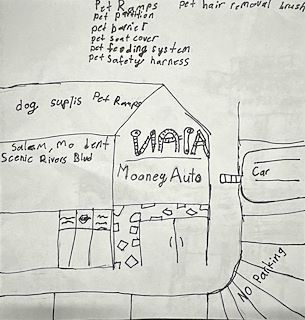 Pet Ramps
pet hair removal brush
pet partition
pet barrier
pet seat cover
pet feeding system
pet safety harness
dog suplis Pet Ramps
Saleam, Mo dent
Scenic Rivers Blvd
NAPA
Mooney Auto
Car
NO Parking